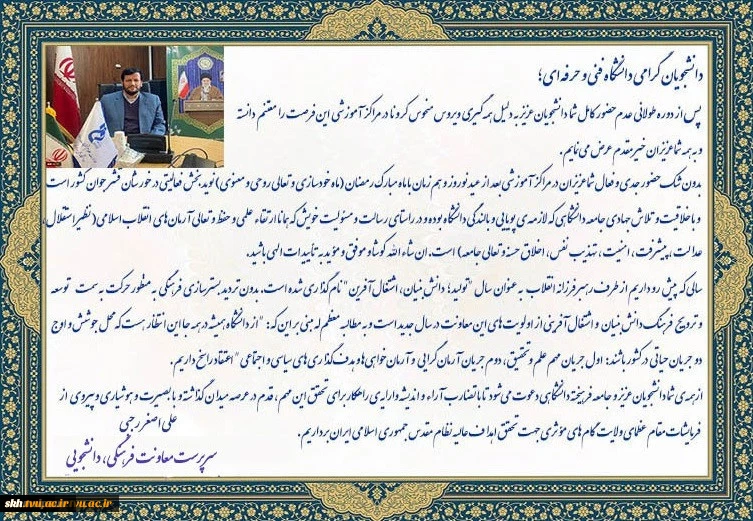 دانشجویان گرامی دانشگاه فنی و حرفه ای؛
پس از دوره طولانی عدم حضور کامل شما دانشجویان عزیز به دلیل همه گیری ویروس منحوس کرونا در مراکز آموزشی این فرصت را مغتنم دانسته
و به همه شما عزیزان خیر مقدم عرض می نمایم.
بدون شک حضور جدی و فعال شما عزیزان در مراکز آموزشی بعد از عید نوروز و هم زمان با ماه مبارک رمضان (ماه خودسازی و تعالی روحی و معنوی) نوید بخش فعالیتی در خور شان قشر جوان کشور است
و با خلاقیت و تلاش جهادی جامعه دانشگاهی که لازمه ی پویایی و بالندگی دانشگاه بوده و در راستای رسالت و مسئولیت خویش که همانا ارتقاء علمی و حفظ و تعالی آرمان های انقلاب اسلامی (نظیر استقلال،
عدالت، پیشرفت، امنیت، تهذیب نفس، اخلاق حسنه و تعالی جامعه) است. ان شاء الله کوشا و موفق و موید به تأییدات الهی باشید.
سالی که پیش رو داریم از طرف رهبر فرزانه انقلاب به عنوان سال "تولید؛ دانش بنیان، اشتغال آفرین" نام گذاری شده است. بدون تردید بسترسازی فرهنگی به منظور حرکت به سمت توسعه
و ترویج فرهنگ دانش بنیان و اشتغال آفرینی از اولویت های این معاونت در سال جدید است و به مطالبه معظم له مبنی بر این که: "از دانشگاه همیشه در همه جا این انتظار هست که محل جوشش و اوج
دو جریان حیاتی در کشور باشند: اول جریان مهم علم و تحقیق، دوم جریان آرمان گرایی و آرمان خواهی ها و هدف گذاری های سیاسی و اجتماعی" اعتقاد راسخ داریم.
از همه ی شما دانشجویان عزیز و جامعه فرهیخته دانشگاهی دعوت می شود تا با تضارب آراء و اندیشه و ارایه ی راهکار برای تحقق این مهم، قدم در عرصه میدان گذاشته و با بصیرت و هوشیاری و پیروی از
فرمایشات مقام عظمای ولایت گام های مؤثری جهت تحقق اهداف عالیه نظام مقدس جمهوری اسلامی ایران برداریم.
علی اصغر رجبی
سرپرست معاونت فرهنگی، دانشجویی
skh.tvu.ac.ir